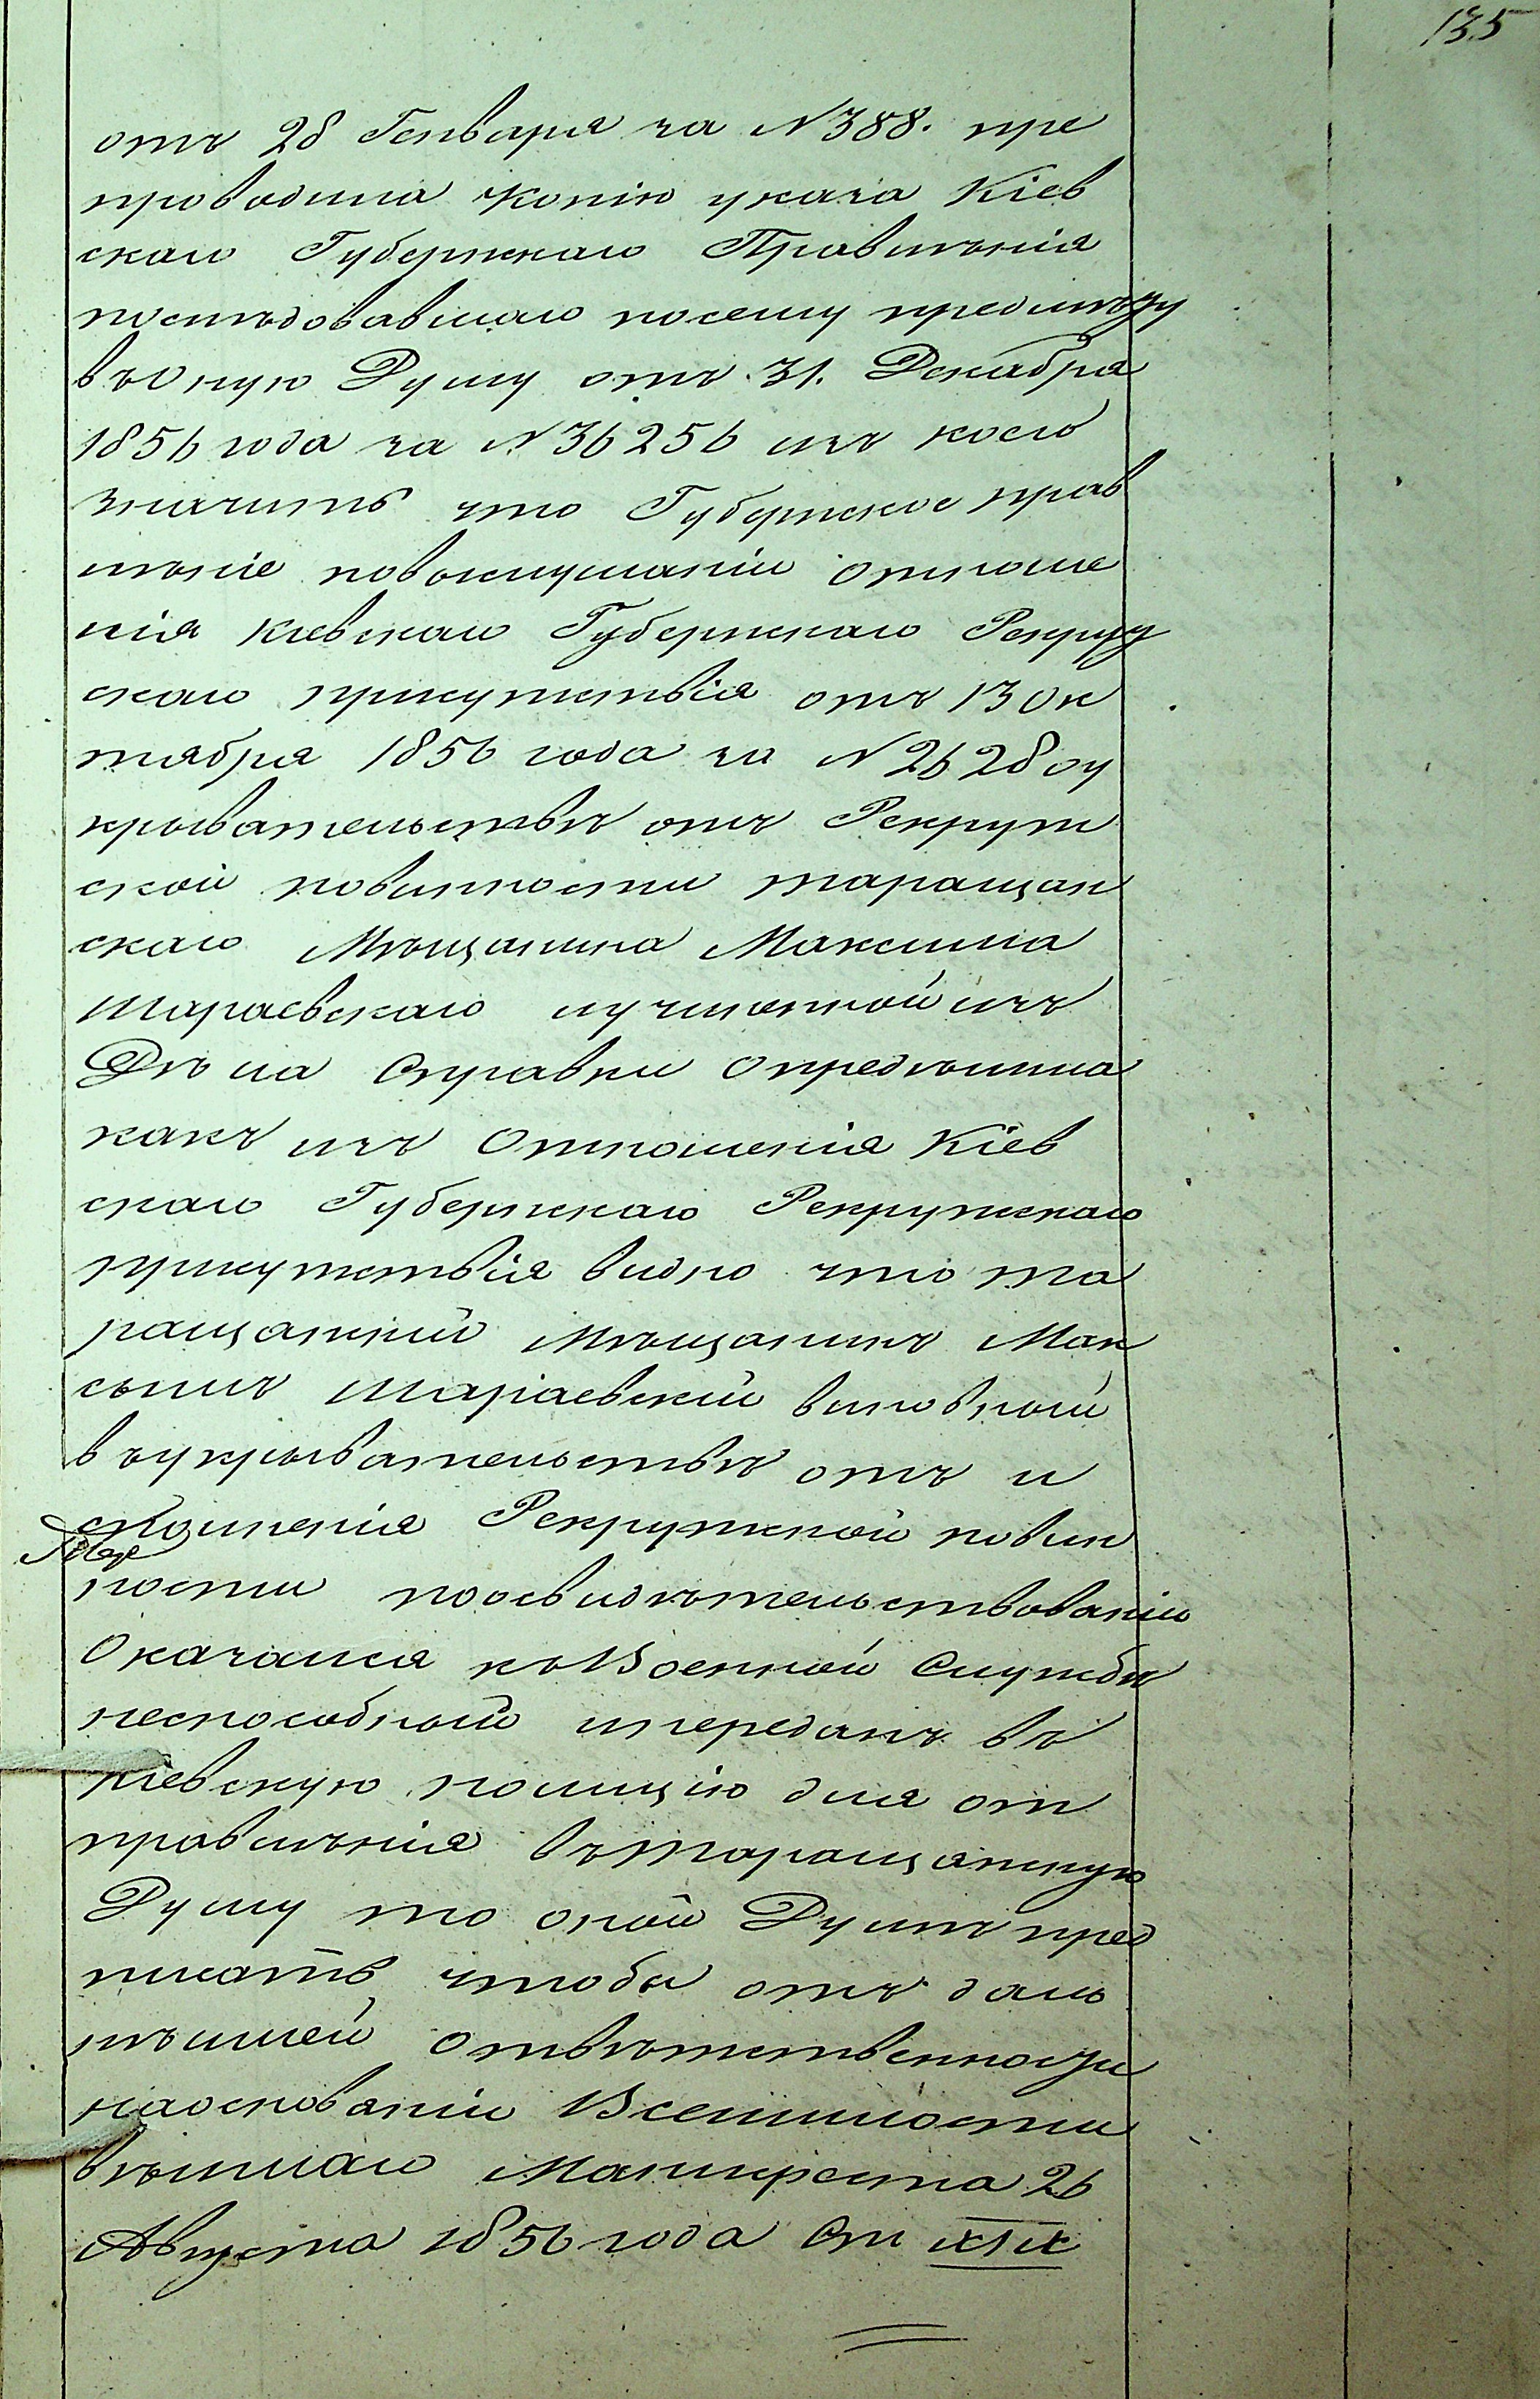 135
отъ 28 Генваря за N 388. пре
проводила копію указа Кіев
скаго Губернскаго Правленія
последовавшаго посему предмѣту
въ Оную Думу отъ 31. Декабря
1856 года за N 36256 изъ коего
значитъ что Губернское прав
лѣніе повыслушаніи отноше
нія Кіевскаго Губернскаго Рекруц
скаго присутствія отъ 13 Ок
тября 1856 года за N 2628 оу
крывательствѣ отъ Рекрут
ской повинности таращан
скаго Мѣщанина Максима
Шараевскаго изъ
Дѣла Справки Опредѣлила
какъ изъ Отношенія Кіев
скаго Губернскаго Рекрутскаго
присутствія видно что та
ращанскій Мѣщанинъ Мак
сымъ Шараевскій виновный
въ укрывательствѣ отъ и
сполненія Рекрутской повин
ности поосвидѣтельствованіи
Оказался къ Военной Службѣ
неспособный ипереданъ въ
кіевскую полицію для от
правленія въ таращанскую
Думу то оной Думѣ пред
писать чтобы отъ даль
нѣшей Отвѣтственности
наоснованіи Всемилости
вѣшшаго Манифеста 26
Августа 1856 года Ст XIX